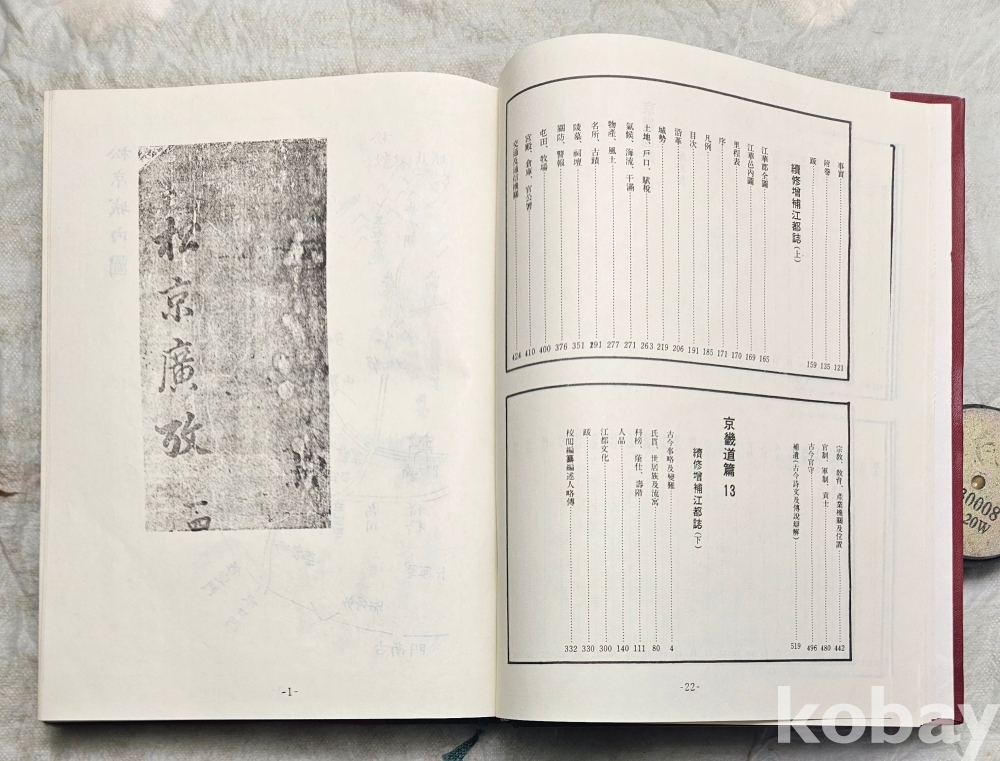 事實 121
附卷 135
跋 159
續修增補江都誌(上)
江華郡全圖 165
江華邑內圖 169
里程表 170
序 171
凡例 185
目次 191
沿革 206
城勢 219
土地、戶口、賦稅 263
氣候、海流、干滿 271
物產、風土 277
名所、古蹟 291
陵墓、祠壇 351
關防、警報 376
屯田、牧場 400
宮殿、倉庫、官公署 410
交通及通信機關 424
宗教、敎育、產業機關及位置 442
官制、軍制、貢士 480
古今官守 496
補遺(古今詩文及傳說辯解) 519
京畿道篇 13
續修增補江都誌(下)
古今事略及變難 4
氏貫、世居族及流寓 80
科榜、蔭仕、壽階 111
人品 140
江都文化 300
跋 330
校閱編纂編述人略傳 332
-22-
松京廣攷
-1-
0008
20W
kobay